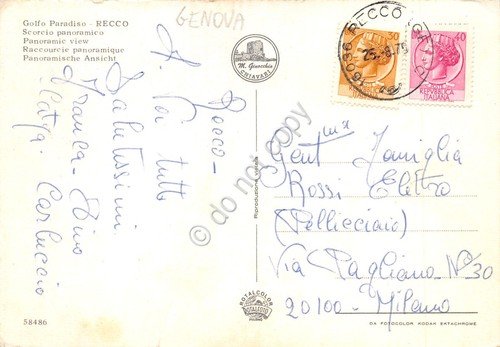 Golfo Paradiso - RECCO
Scorcio panoramico
Panoramic view
Raccourcie panoramique
Panoramische Ansicht
GENOVA
M. Ginocchio
CHIAVARI
Recco -
A Voi tutti
Salutissimi
Franca - Dino
Katya - Carluccio
Riproduzione vietata
16036 RECCO (GE)
30
40
POSTE
REPUBBLICA
ITALIANA
Gent.ma Famiglia
Rossi Eletto
(Pellicciaio)
Via Pagliano N° 30
20100 - Milano
ROTALCOLOR
ROTALFOTO
MILANO
58486
DA FOTOCOLOR KODAK EKTACHROME
© do not copy